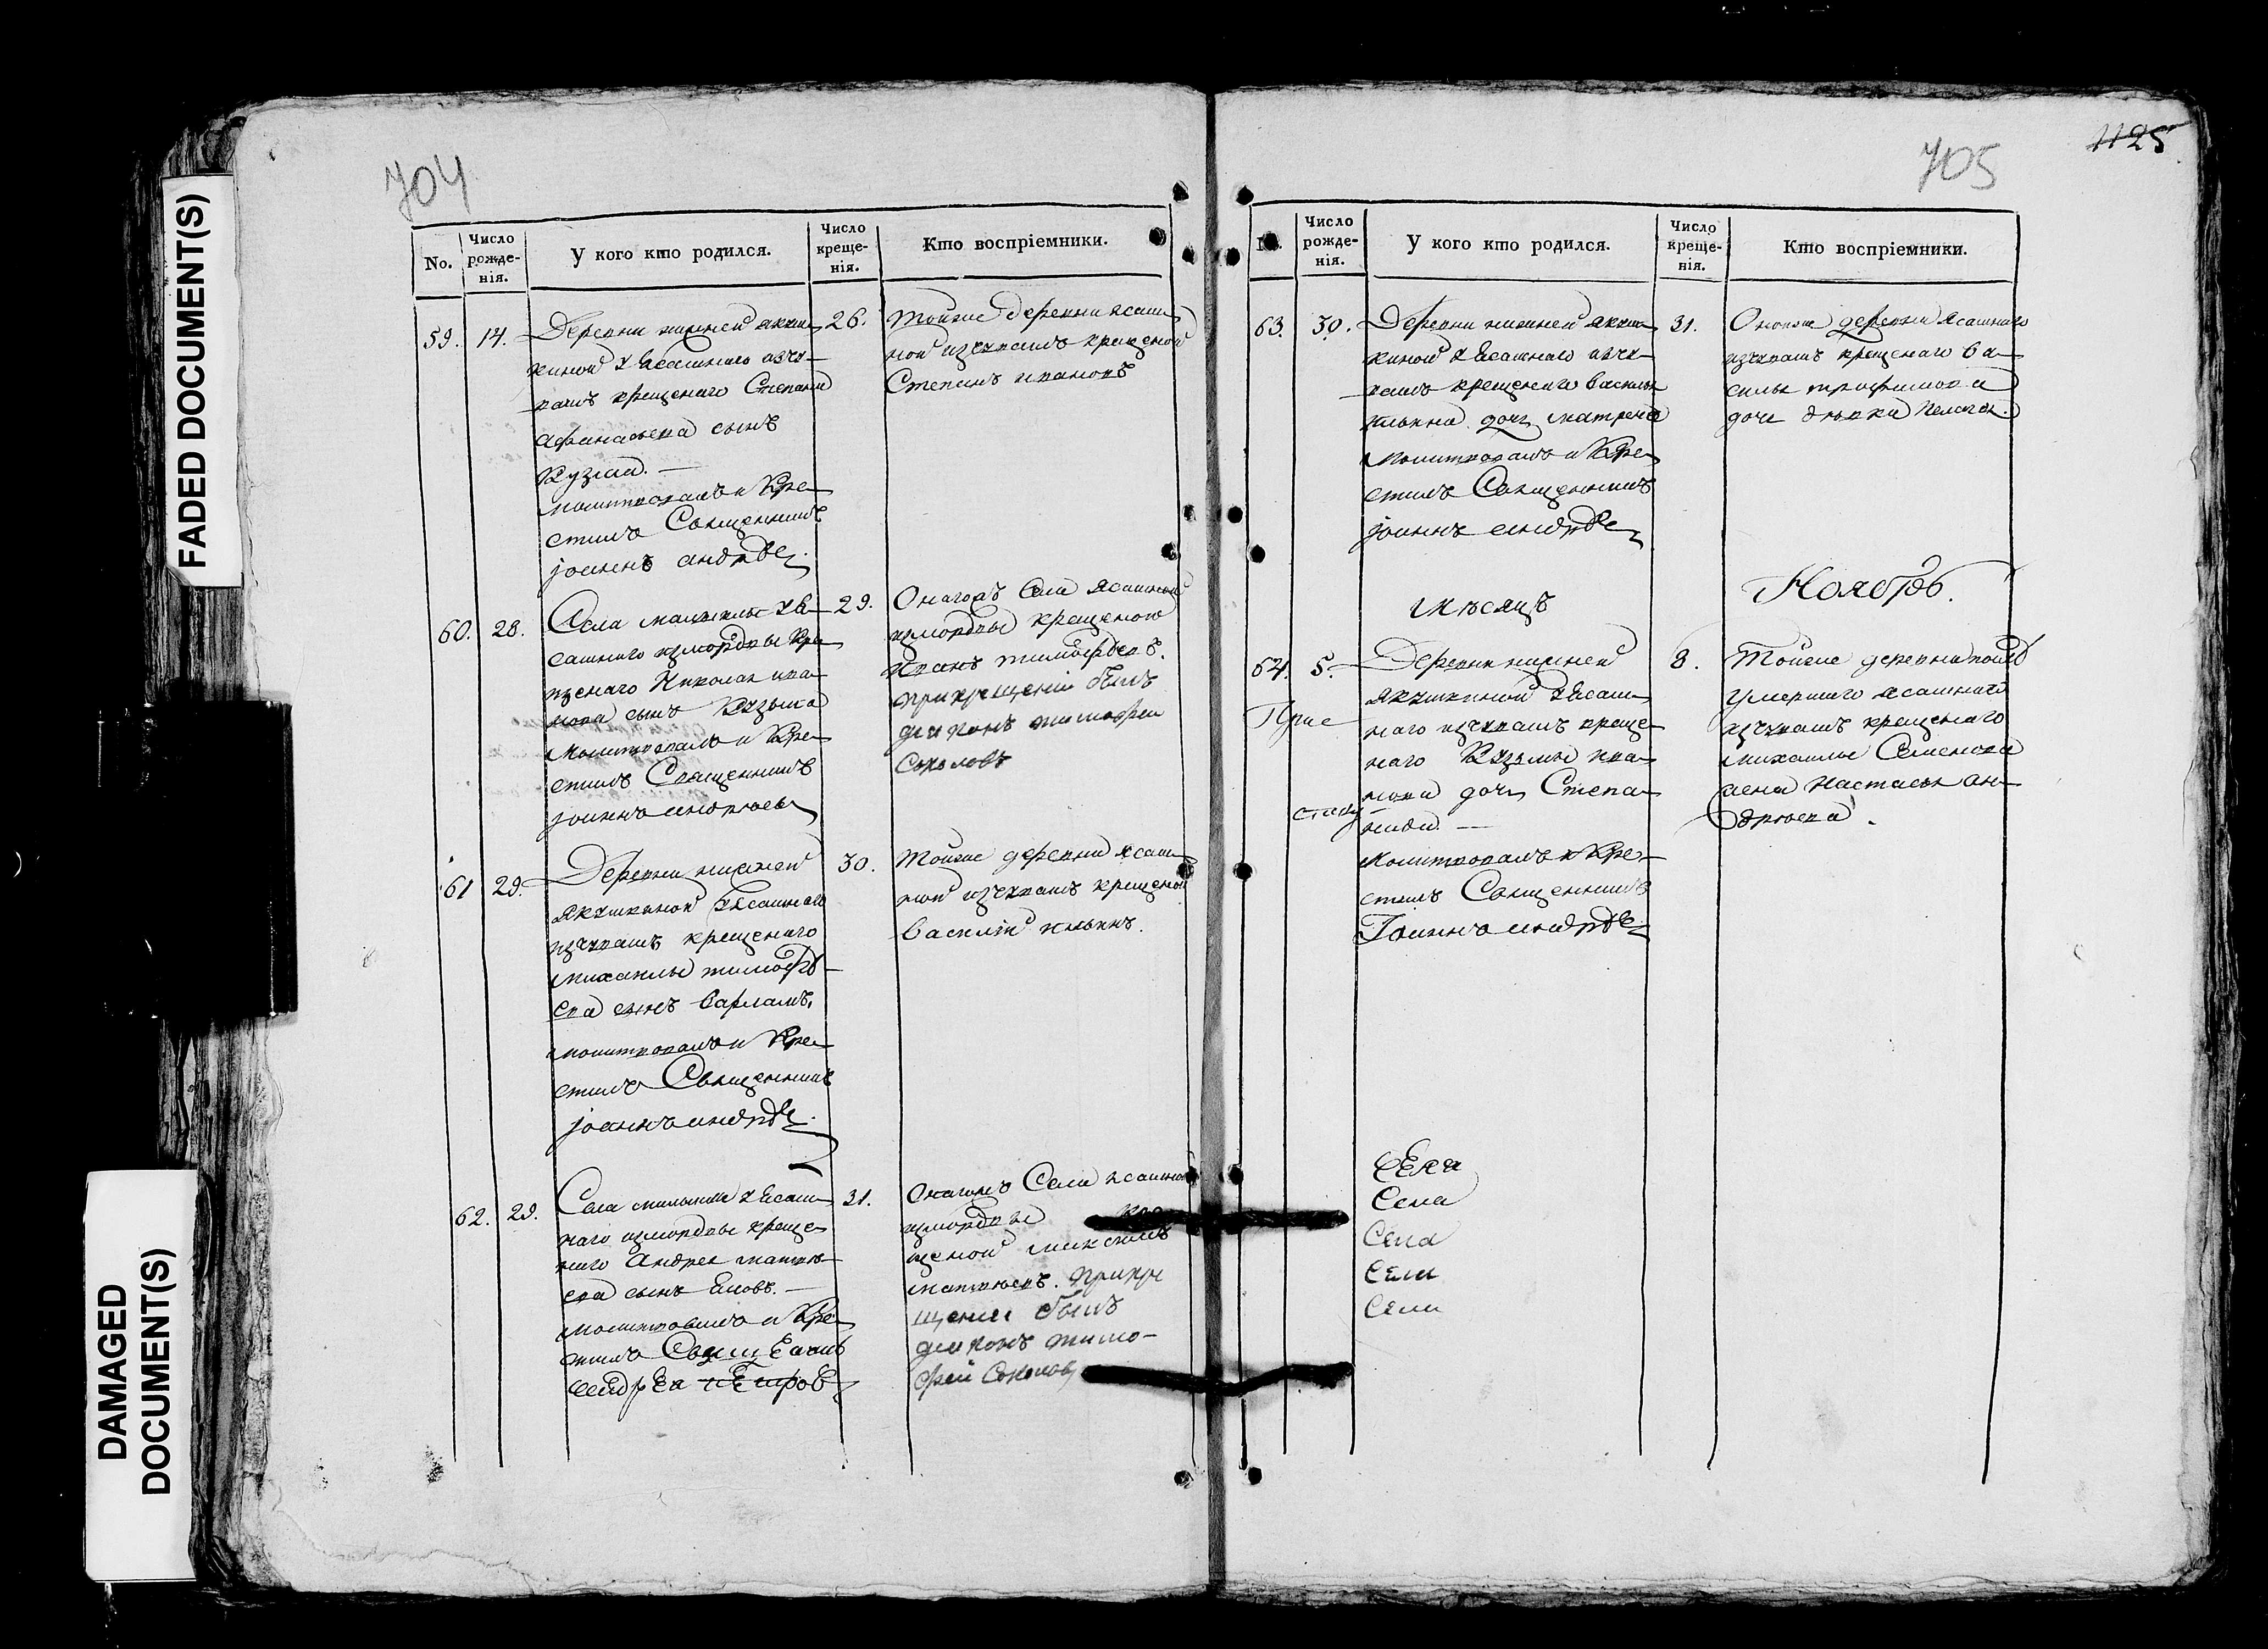 FADED DOCUMENT(S)
DAMAGED
DOCUMENT(S)
704
No.
Число
рожде-
нія.
У кого кто родился.
Число
креще-
нія.
Кто воспріемники.
59. 14.
Деревни нижней якуш
киной у Ясашнаго изчу
вашъ крещенаго Степана
афанасьева сынъ
Кузма.
молитвовалъ и Кре
стилъ Священникъ
јоаннъ андрѣе
26.
Тойже деревни ясаш
ной изчувашъ крещеной
Степанъ ивановъ
60. 28.
Села малыклы у Я
сашнаго измордвы Кре
щенаго Николая ива
нова сынъ Кузьма
молитвовалъ и Кре
стилъ Священникъ
јоаннъ андреев
29.
Онагожъ Села Ясашной
измордвы крещеной
Иванъ тимофѣевъ.
прикрещеніи былъ
диаконъ тимофеи
Соколовъ
61 29.
Деревни нижней
якушкиной у Ясашнаго
изчувашъ крещенаго
михаилы тимофѣ
ева сынъ Варламъ.
молитвовалъ и Кре
стилъ Священникъ
јоаннъ андрѣе
30.
Тойже деревни ясаш
ной изчувашъ крещеной
Василій ильинъ.
62. 29.
Села малыклы у Ясаш
наго измордвы креще
наго Андрея матвѣ
ева сынъ Иовъ.
молитвовалъ и Кре
стилъ Свящ
андреи Петров
31.
Онагожъ Села ясашной
измордвы кре
щеной максимъ
матвѣевъ. прикре
щении былъ
диаконъ тимо-
фей Соколов
705
1125
Число
рожде-
нія.
У кого кто родился.
Число
креще-
нія.
Кто воспріемники.
63. 30.
Деревни нижней якуш
киной у Ясашнаго изчу
вашъ крещенаго василья
ильина дочь матрена
молитвовалъ и Кре
стилъ Священникъ
јоаннъ андрѣе
31.
Оной же деревни Ясашнаго
изчувашъ крещенаго Ва
силья трофимова
дочь дѣвка Пелагея.
мѣсяцъ
Ноябрь.
64. 5.
Деревни нижней
якушкиной у Ясаш
наго изчувашъ креще
наго Кузьмы ива
нова дочь Степа
нида.
молитвовалъ и Кре
стилъ Священникъ
Іоаннъ андрѣе
8.
Тойже деревни
умершаго ясашнаго
изчувашъ крещенаго
михаилы Семенова
жена Настасья ан
дреева.
Села
Села
Села
Села
Села